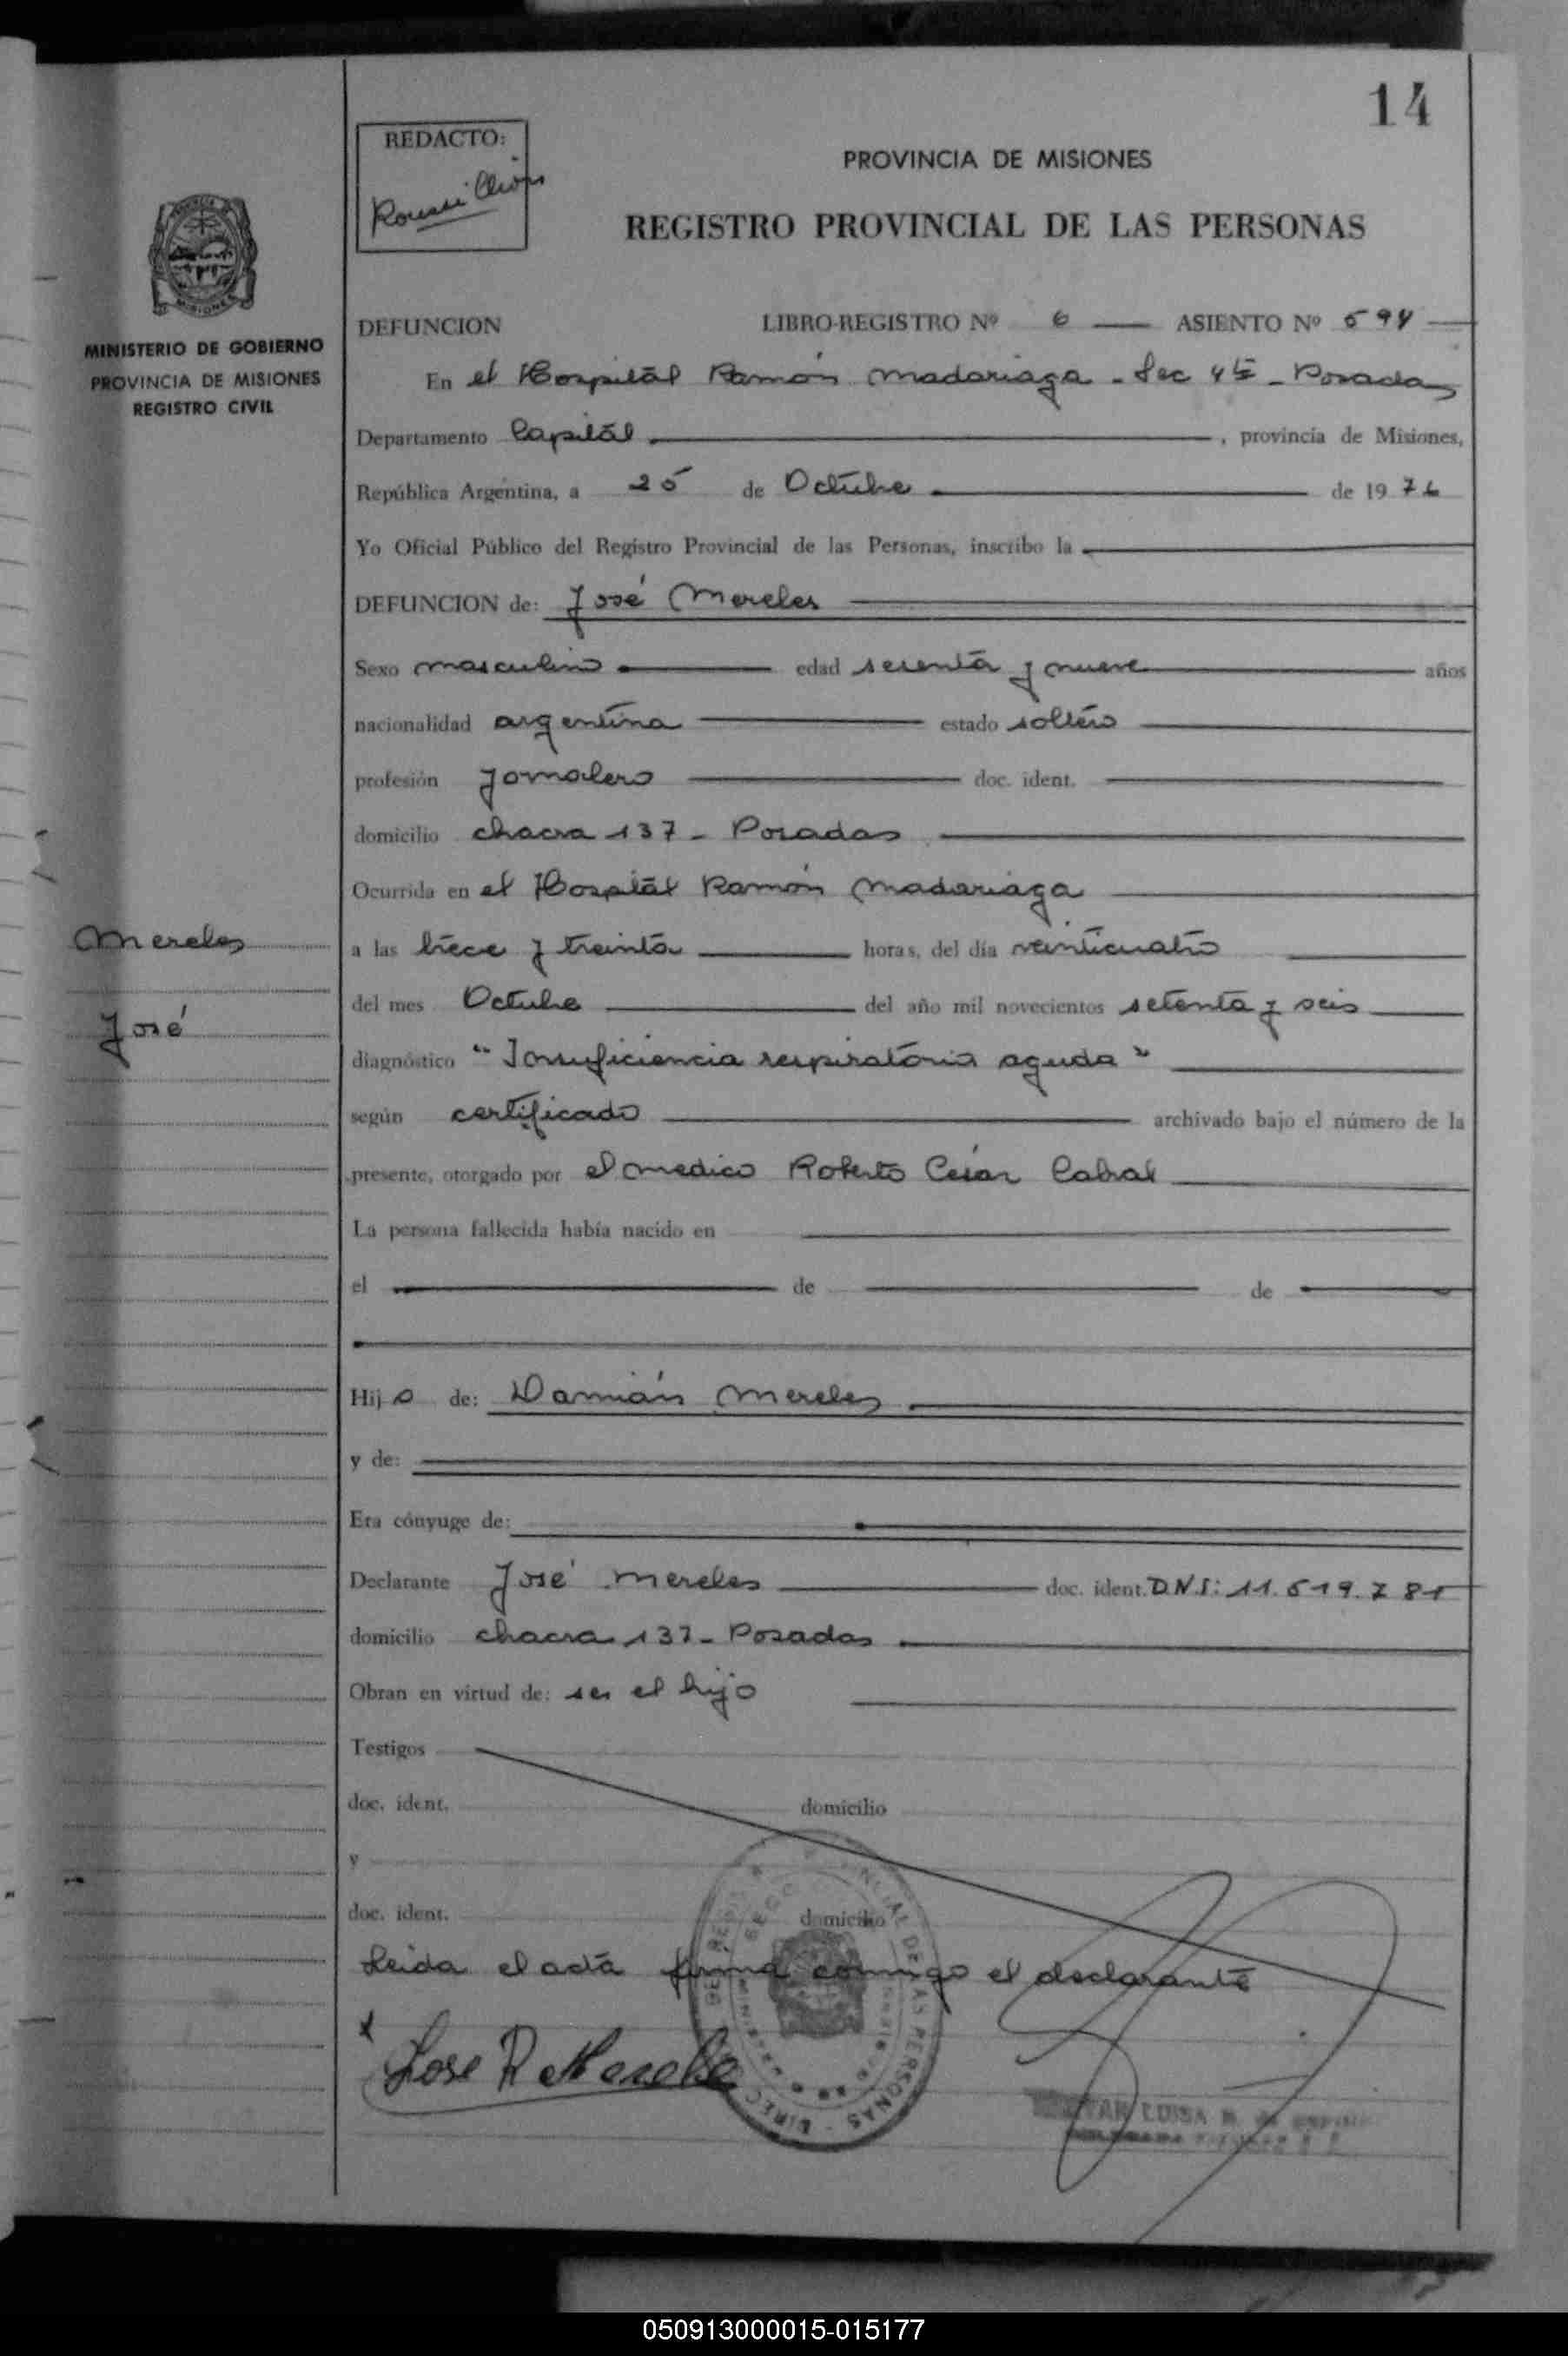 14
REDACTO:
PROVINCIA DE MISIONES
REGISTRO PROVINCIAL DE LAS PERSONAS
MISIONES
MINISTERIO DE GOBIERNO
PROVINCIA DE MISIONES
REGISTRO CIVIL
DEFUNCION LIBRO-REGISTRO Nº 6 ASIENTO Nº 594
En el Hospital Ramón Madariaga - Sec 4ta - Posadas
Departamento Capital, provincia de Misiones,
República Argentina, a 25 de Octubre de 1976
Yo Oficial Público del Registro Provincial de las Personas, inscribo la
DEFUNCION de: José Mereles
Sexo masculino edad sesenta y nueve años
nacionalidad argentina estado soltero
profesión jornalero doc. ident.
domicilio chacra 137 - Posadas
Ocurrida en el Hospital Ramón Madariaga
Mereles
José
a las trece y treinta horas, del día veinticuatro
del mes Octubre del año mil novecientos setenta y seis
diagnóstico "Insuficiencia respiratoria aguda"
según certificado archivado bajo el número de la
presente, otorgado por el medico Roberto César Cabral
La persona fallecida había nacido en
el de de
Hijo de: Damián Mereles
y de:
Era cónyuge de:
Declarante José Mereles doc. ident. D.N.I: 11.519.781
domicilio chacra 137 - Posadas
Obran en virtud de: ser el hijo
Testigos
doc. ident. domicilio
y
doc. ident. domicilio
Leida el acta firma conmigo el declarante
x
Jose R Mereles
050913000015-015177